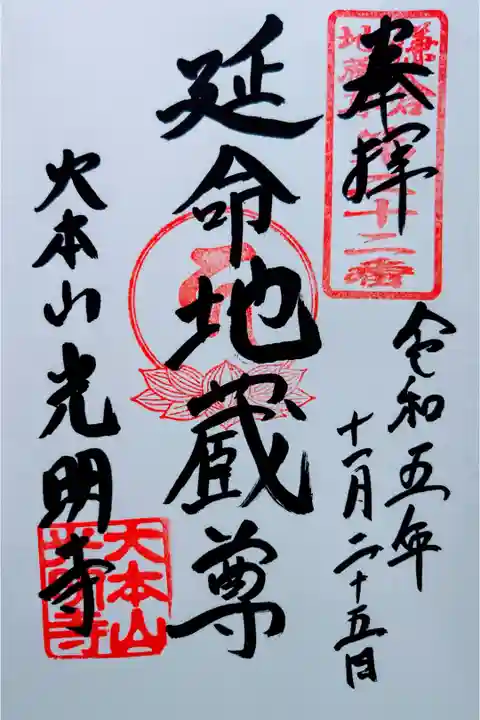 鎌倉
地蔵尊
第二十二番
奉拝
令和五年
十一月二十五日
延命地蔵尊
大本山光明寺
大本山
光明寺